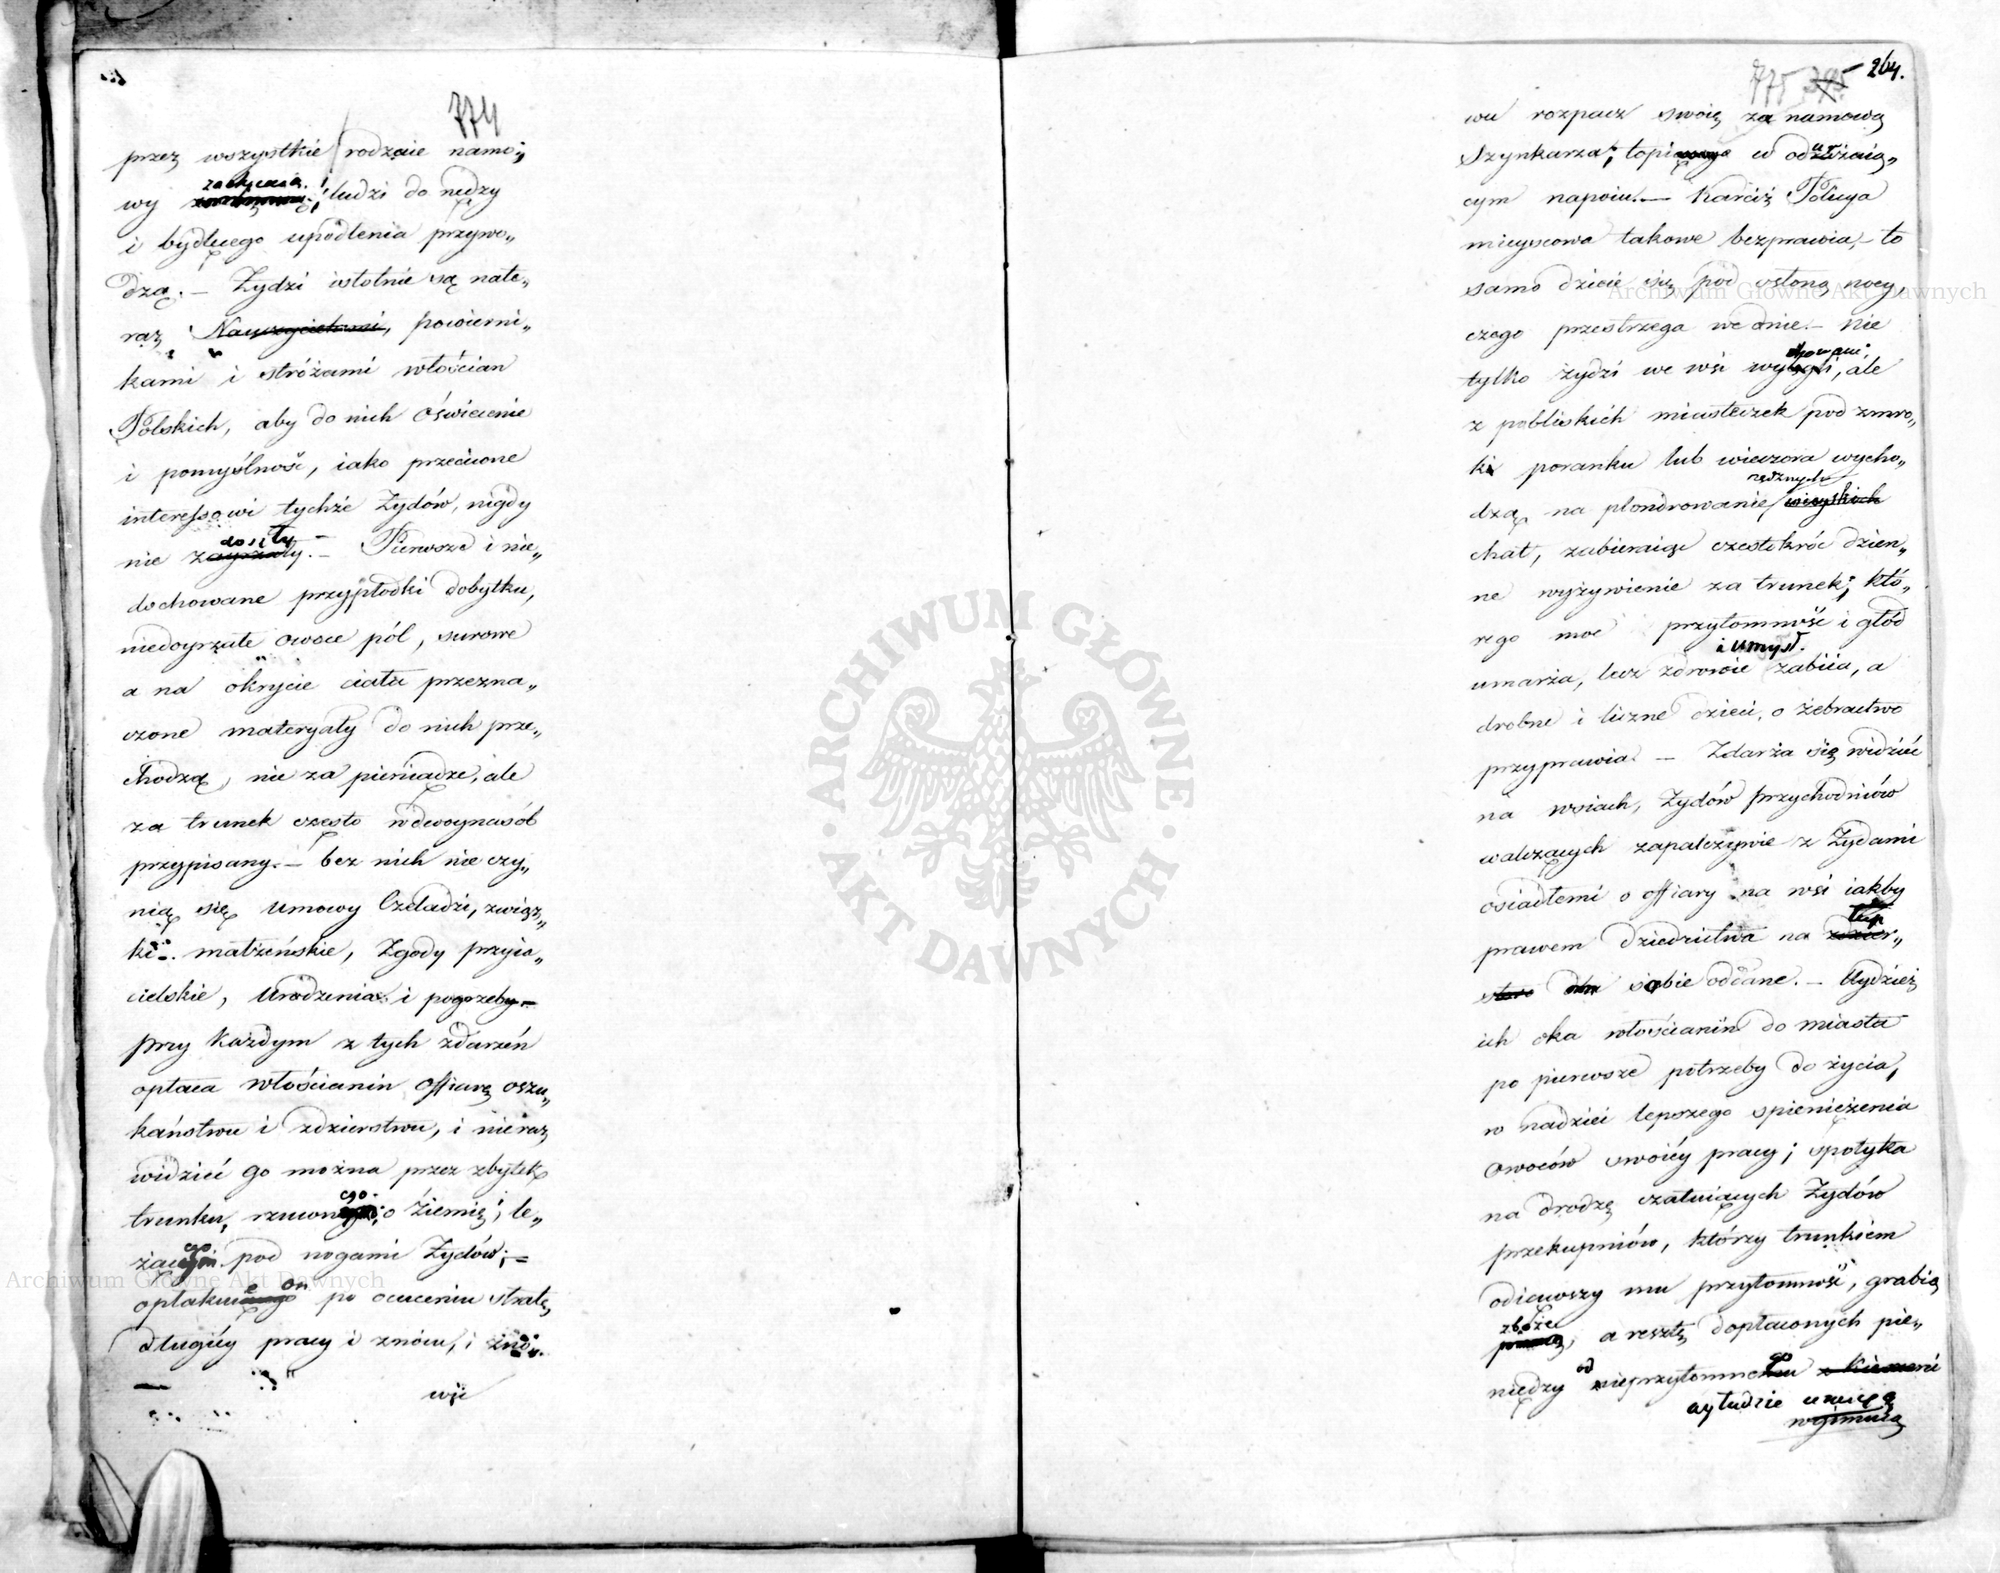 774
przez wszystkie rodzaie namo„
wy zachęcenia ludzi do nędzy
i bydlęcego upodlenia przywo„
dzą. — Żydzi istotnie są nate„
raz Nauczycielami, powierni„
kami i stróżami włościan
Polskich, aby do nich Oświecenie
i pomyślność, iako przeciwne
interessowi tychże Żydów, nigdy
nie doszły. — Pierwsze i nie„
dochowane przypłodki dobytku,
niedoyrzałe owoce pól, surowe
a na okrycie ciała przezna„
czone materyały do nich prze„
chodzą, nie za pieniądze, ale
za trunek często wdwoynasób
przypisany. — bez nich nie czy„
nią się Umowy Czeladzi, związ„
ki małżeńskie, Zgody przyia„
cielskie, Urodzenia i pogrzeby —
przy każdym z tych zdarzeń
opłaca włościanin offiarę oszu„
kaństwu i zdzierstwu, i nieraz
widzieć go można przez zbytek
trunku, rzuconego o ziemię, le„
żącego pod nogami Żydów; —
opłakuie on po ocuceniu stratę
długiéy pracy i znowu, i zno„
wu
264.
775 395
wu rozpacz swoię za namową
Szynkarza, topi w odurzaią„
cym napoiu. — Karciż Policya
mieyscowa takowe bezprawia, — to
samo dzieie się pod osłoną nocy,
czego przestrzega we dnie. — Nie
tylko żydzi we wsi wychowani, ale
z pobliskich miasteczek pod zmro„
ki poranku lub wieczora wycho„
dzą na plondrowanie nędznych wieyskich
chat, zabieraiąc częstokroć dzien„
ne wyżywienie za trunek; któ„
rego moc przytomność i głód
umarza, lecz zdrowie i umysł zabiia, a
drobne i liczne dzieci, o żebractwo
przyprawia. — Zdarza się widzieć
na wsiach, Żydów przychodniów
walczących zapalczywie z Żydami
osiadłemi o offiary na wsi iakby
prawem dziedzictwa na łup
sobie oddane. — Uydzież
ich oka włościanin do miasta
po pierwsze potrzeby do życia,
w nadziei lepszego spieniężenia
owoców swoiéy pracy; spotyka
na drodze czatuiących Żydów
przekupniów, którzy trunkiem
odiąwszy mu przytomność, grabią
zboże, a resztę dopłaconych pie„
niędzy od nieprzytomnego z kieszeni
wyłudzić umieią
wyimuią